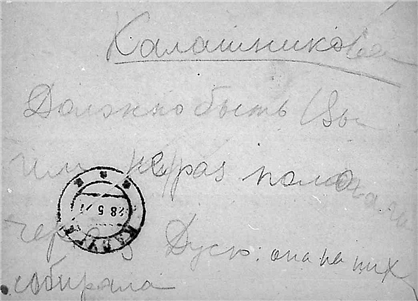 Калашникова
Должно быть Вы
им не раз помо
гали
через Дусю: она на них
собирала
28 5
КАЛУГА